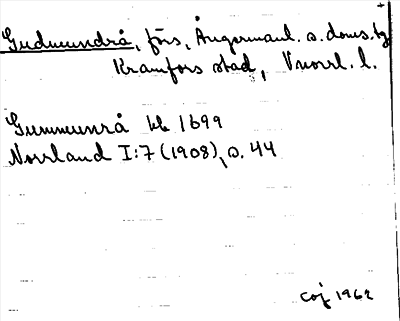 Gudmundrå, förs, Ångermanl. s. doms.bg
Kramfors stad, Vnorrl. l.
Gummunrå kb 1699
Norrland I:7 (1908), s. 44
Coj 1962